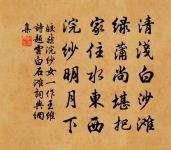 清淺白沙灘
綠蒲尚堪把
家住水東西
浣紗明月下
皎然浣紗女一作王維
詩題雲白石灘詞典網
集